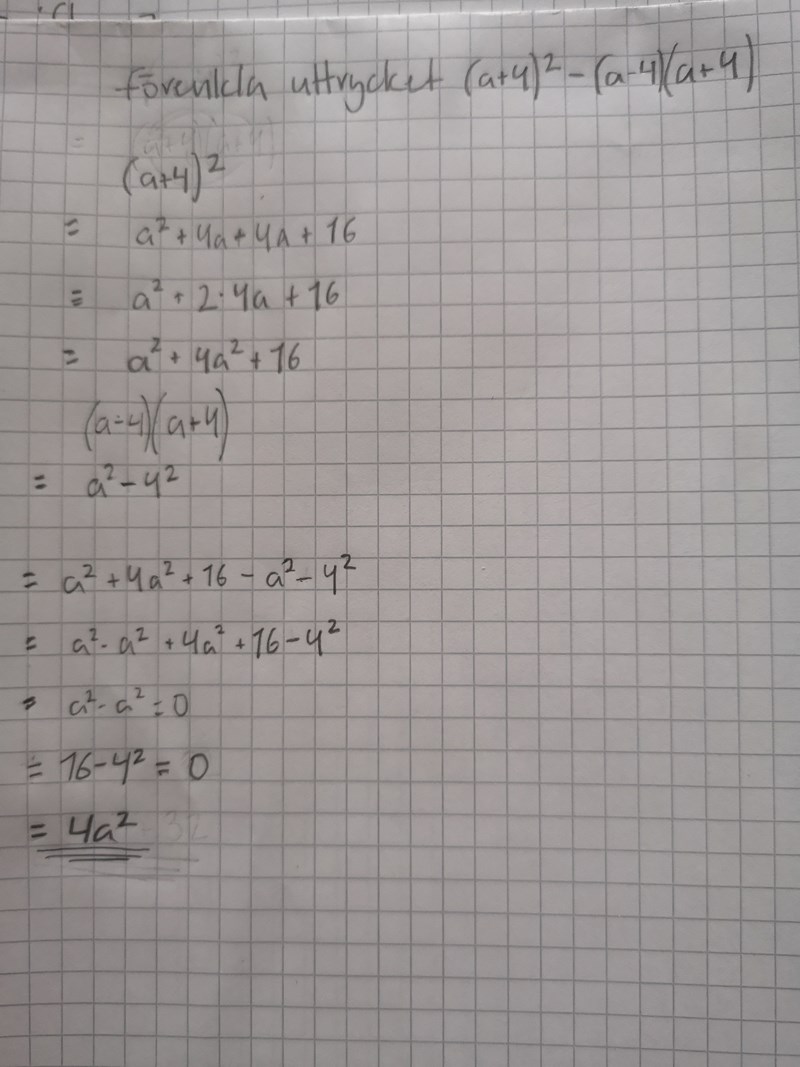 Förenkla uttrycket (a+4)² - (a-4)(a+4)
(a+4)²
= a² + 4a + 4a + 16
= a² + 2·4a + 16
= a² + 4a² + 16
(a-4)(a+4)
= a² - 4²
= a² + 4a² + 16 - a² - 4²
= a² - a² + 4a² + 16 - 4²
= a² - a² = 0
= 16 - 4² = 0
= 4a²